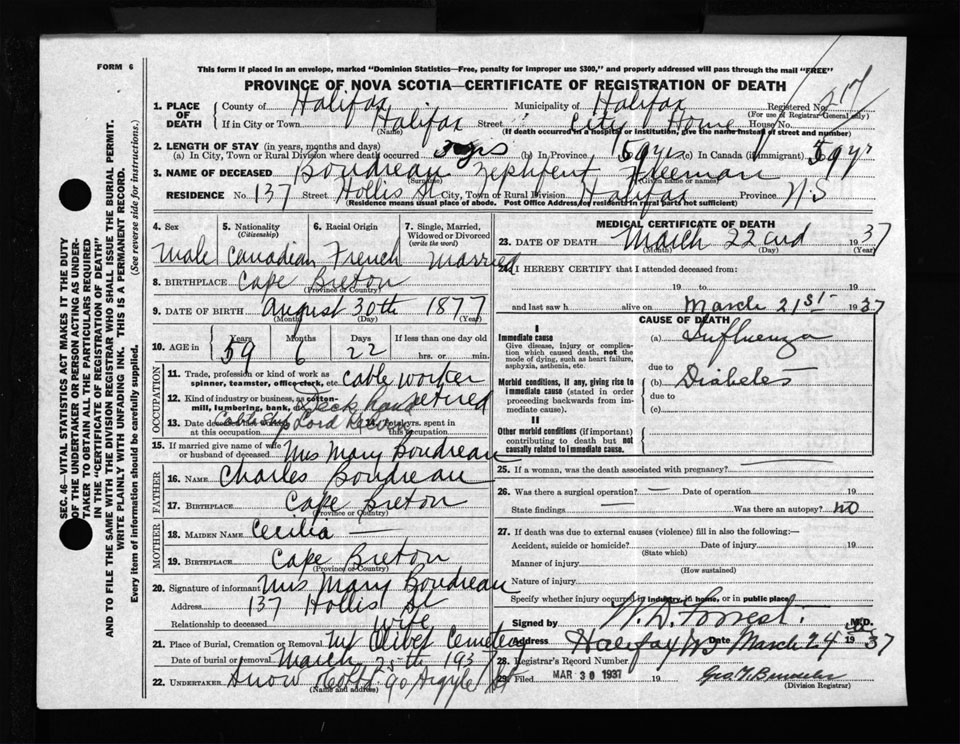 FORM 6
This form if placed in an envelope, marked "Dominion Statistics—Free, penalty for improper use $300," and properly addressed will pass through the mail "FREE"
PROVINCE OF NOVA SCOTIA—CERTIFICATE OF REGISTRATION OF DEATH
1. PLACE OF DEATH
County of Halifax Municipality of Halifax Registered No. 217
(For use of Registrar-General only)
If in City or Town Halifax Street City Home House No.
(Name) (If death occurred in a hospital or institution, give the name instead of street and number)
2. LENGTH OF STAY (in years, months and days)
(a) In City, Town or Rural Division where death occurred yrs (b) In Province 59 yrs (c) In Canada (if immigrant) 59 yr
3. NAME OF DECEASED Boudreau Freeman
(Surname) (Given name or names)
RESIDENCE No. 137 Street Hollis St City, Town or Rural Division Halifax Province N.S
(Residence means usual place of abode. Post Office Address of residents in rural parts not sufficient)
4. Sex 5. Nationality 6. Racial Origin 7. Single, Married,
(Citizenship) Widowed or Divorced
(write the word)
Male Canadian French Married
8. BIRTHPLACE Cape Breton
(Province or Country)
9. DATE OF BIRTH August 30th 1877
(Month) (Day) (Year)
10. AGE in Years Months Days If less than one day old
59 6 22 hrs. or min.
OCCUPATION
11. Trade, profession or kind of work as
spinner, teamster, office clerk, etc. cable worker
retired
12. Kind of industry or business, as cotton-
mill, lumbering, bank, Deck hand
13. Date deceased last worked 14. Total yrs. spent in
at this occupation Cable Ship Lord this occupation
15. If married give name of wife
or husband of deceased Mrs Mary Boudreau
FATHER
16. NAME Charles Boudreau
17. BIRTHPLACE Cape Breton
(Province or Country)
MOTHER
18. MAIDEN NAME Cecilia —
19. BIRTHPLACE Cape Breton
(Province or Country)
20. Signature of informant Mrs Mary Boudreau
Address 137 Hollis St
Relationship to deceased wife
21. Place of Burial, Cremation or Removal Mt Olivet Cemetery
Date of burial or removal March 25th 1937
22. UNDERTAKER Snow & Co Ltd 90 Argyle St
(Name and address)
MEDICAL CERTIFICATE OF DEATH
23. DATE OF DEATH March 22nd 1937
(Month) (Day) (Year)
24. I HEREBY CERTIFY that I attended deceased from:
19 to 19
and last saw h alive on March 21st 1937
CAUSE OF DEATH
I
Immediate cause
Give disease, injury or complica-
tion which caused death, not the
mode of dying, such as heart failure,
asphyxia, asthenia, etc.
(a) Influenza
due to
Morbid conditions, if any, giving rise to
immediate cause (stated in order
proceeding backwards from im-
mediate cause).
(b) Diabetes
due to
(c)
II
Other morbid conditions (if important)
contributing to death but not
causally related to immediate cause.
25. If a woman, was the death associated with pregnancy? —
26. Was there a surgical operation? — Date of operation 19
State findings — Was there an autopsy? no
27. If death was due to external causes (violence) fill in also the following:—
Accident, suicide or homicide? Date of injury 19
(State which)
Manner of injury
(How sustained)
Nature of injury
Specify whether injury occurred in industry, in home, or in public place
Signed by W. D. Forrest M.D.
Address Halifax NS Date March 24 1937
28. Registrar's Record Number
29. Filed MAR 30 1937 19
(Division Registrar)
SEC. 46—VITAL STATISTICS ACT MAKES IT THE DUTY
OF THE UNDERTAKER OR PERSON ACTING AS UNDER-
TAKER TO OBTAIN ALL THE PARTICULARS REQUIRED
IN THE "CERTIFICATE OF REGISTRATION OF DEATH"
AND TO FILE THE SAME WITH THE DIVISION REGISTRAR WHO SHALL ISSUE THE BURIAL PERMIT.
WRITE PLAINLY WITH UNFADING INK. THIS IS A PERMANENT RECORD.
Every item of information should be carefully supplied. (See reverse side for instructions.)